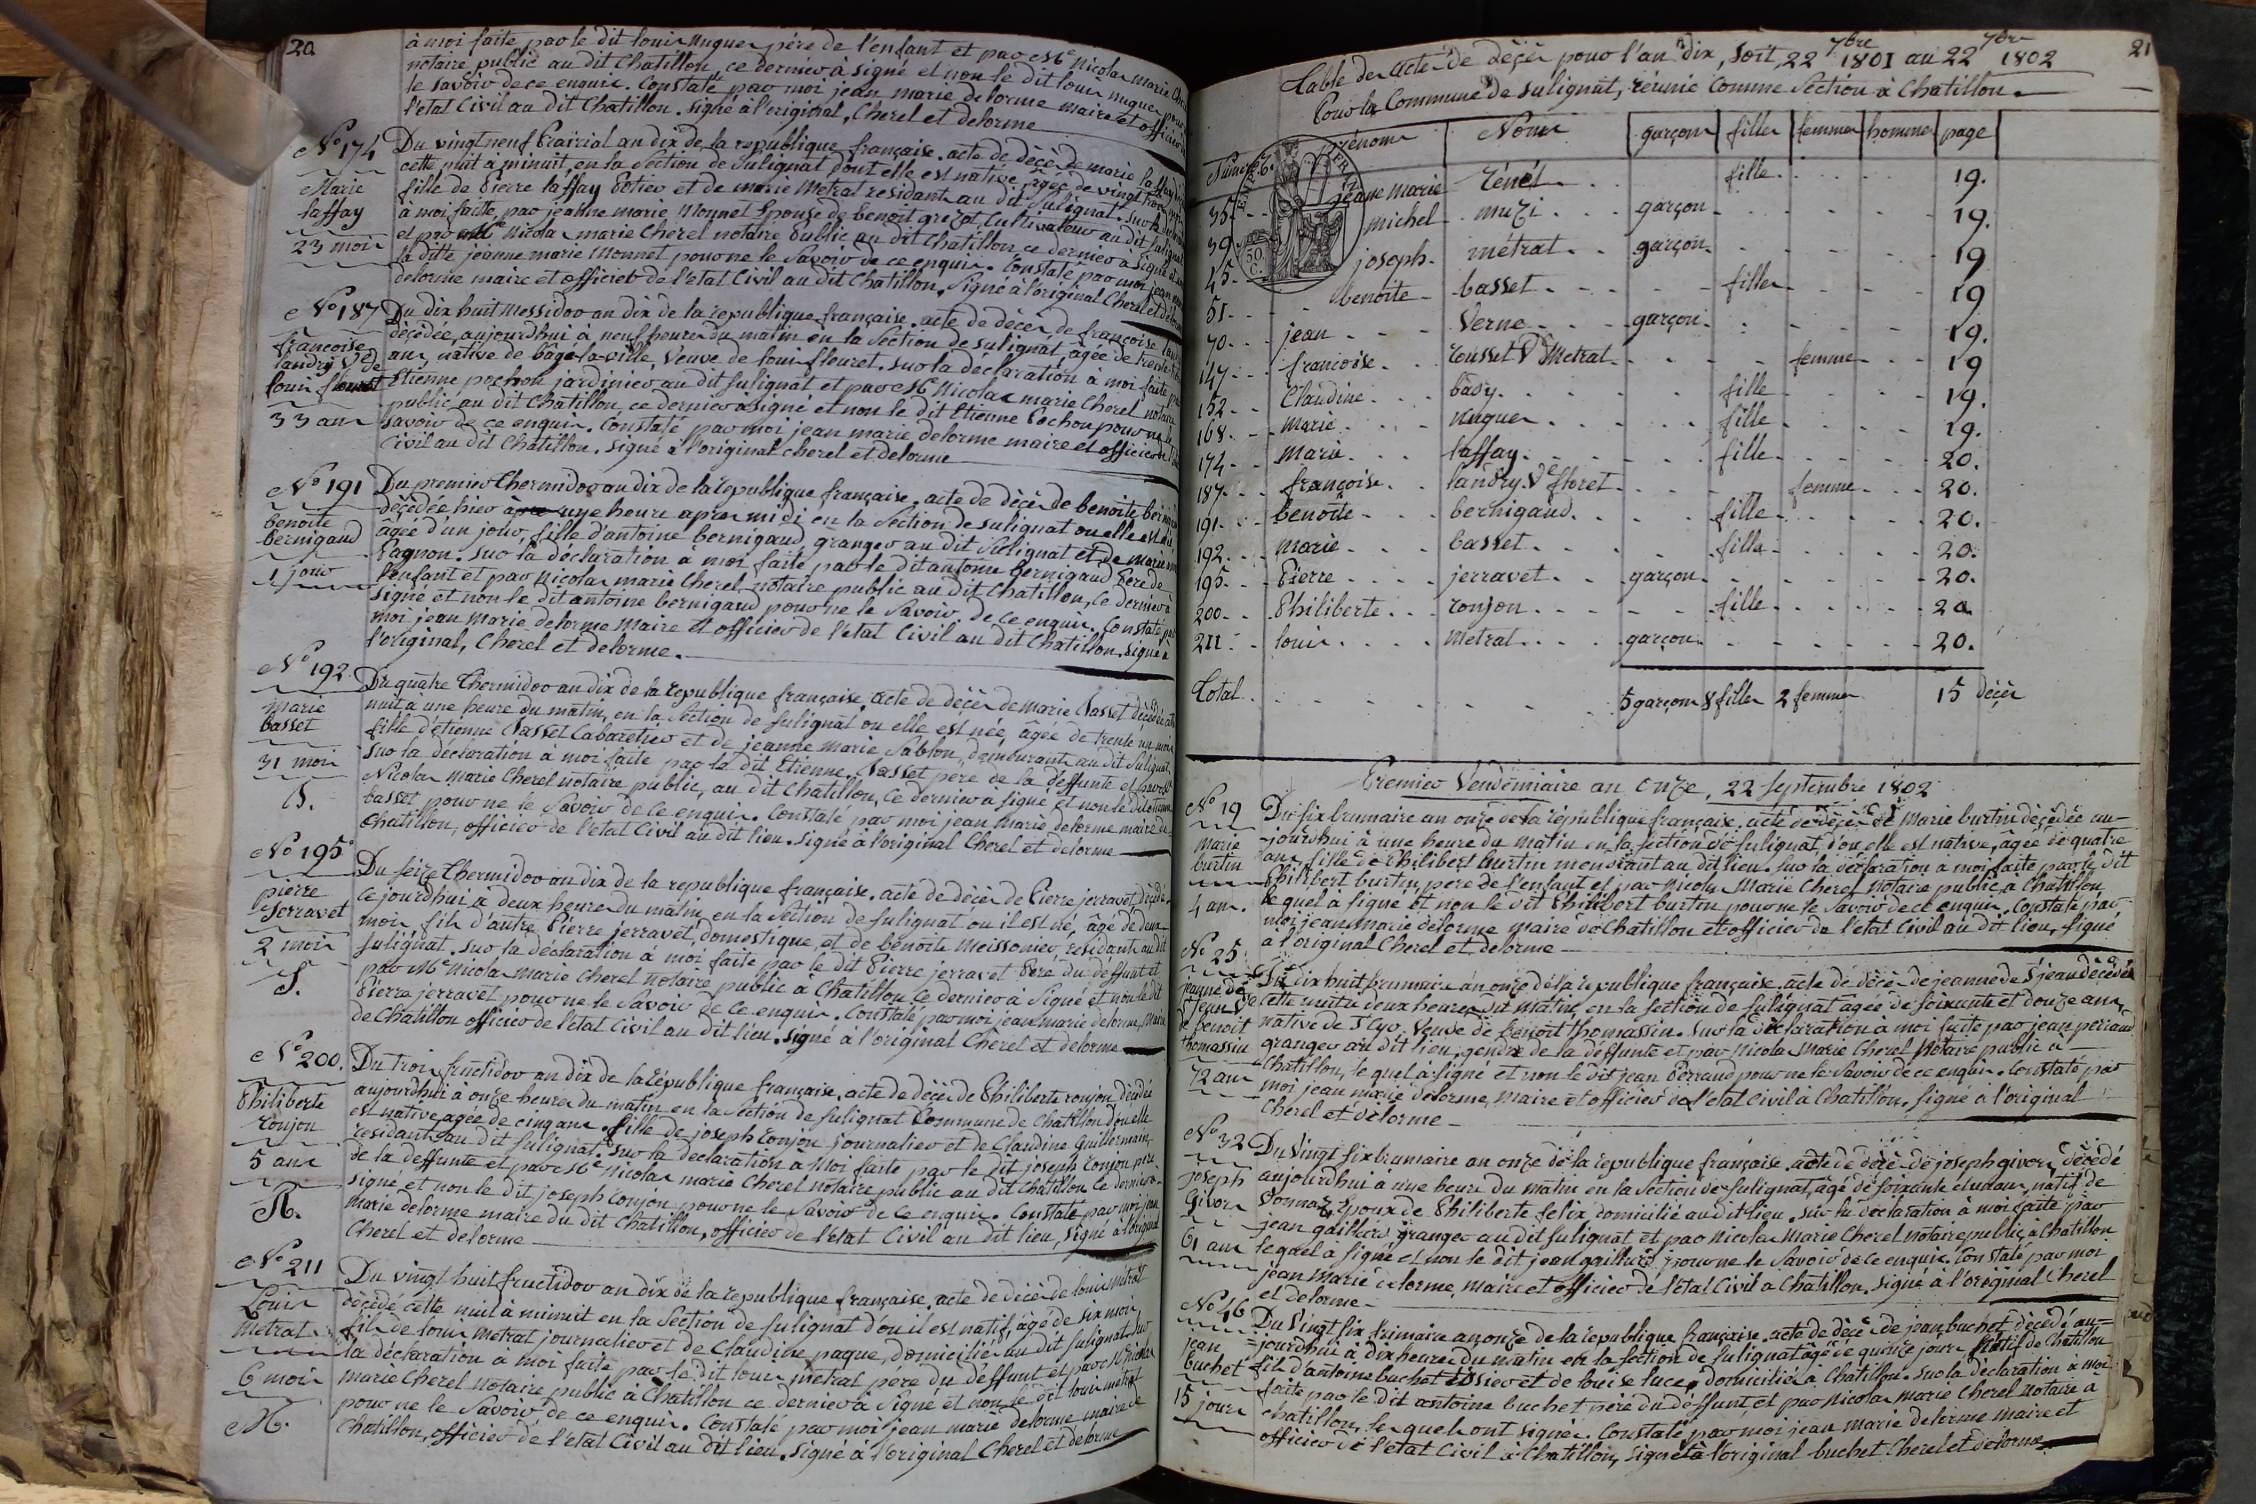 20
à moi faite par le dit louis nugue père de l'enfant et par Me Nicolas Marie
notaire public au dit Chatillon, ce dernier à signé et non le dit louis nugue pour
le savoir de ce enquis. Constaté par moi jean marie delorme maire et officier
l'etat Civil au dit Chatillon. signé à l'original, Cherel et delorme
No 174
Marie
laffay
23 mois
Du vingt neuf Prairial an dix de la republique française. acte de décès de marie laffay
cette nuit à minuit, en la Section de Sulignat dont elle est native, âgée de vingt trois
fille de Pierre laffay Potier et de marie Metrat residant au dit Sulignat. sur la
à moi faite, par jeanne marie Monnet Epouse de benoit grezot Cultivateur au dit Sulignat
et par Me Nicolas marie Cherel notaire Public au dit Chatillon ce dernier a signé et
la ditte jeanne marie Monnet pour ne le savoir de ce enquis. Constaté par moi jean
delorme maire et officier de l'etat Civil au dit Chatillon. Signé à l'original Cherel et delorme
No 187
francoise
landry Ve de
louis fleuret
33 ans
Du dix huit Messidor an dix de la republique française. acte de décès de françoise
décédée, aujourdhui à neuf heures du matin en la Section de sulignat, âgée de trente
ans, native de bâgé-la-ville, Veuve de louis fleuret. sur la déclaration à moi faite
Etienne pochon jardinier au dit sulignat et par Me Nicolas marie Cherel notaire
public au dit Chatillon ce dernier à signé et non le dit Etienne Pochon pour ne le
savoir de ce enquis. Constaté par moi jean marie delorme maire et officier de
Civil au dit Chatillon. signé à l'original cherel et delorme
No 191
benoite
bernigaud
1 jour
Du premier thermidor an dix de la republique française. acte de décès de benoite
décédée hier à une heure après midi en la Section de sulignat ou elle est née
âgée d'un jour, fille d'antoine bernigaud granger au dit Sulignat et de marie
Pagnon. sur la déclaration à moi faite par le dit antoine bernigaud Père de
l'enfant et par Nicolas marie Cherel, notaire public au dit Chatillon, ce dernier à
signé et non le dit antoine bernigaud pour ne le savoir de ce enquis. Constaté par
moi jean marie delorme Maire et officier de l'etat Civil au dit Chatillon. signé à
l'original, Cherel et delorme.
No 192
marie
basset
31 mois
B.
Du quatre thermidor an dix de la republique française. acte de décès de marie basset décédée cette
nuit à une heure du matin, en la Section de sulignat ou elle est née, âgée de trente un mois
fille d'étienne basset Cabaretier et de jeanne marie Sablon, demeurants au dit Sulignat
sur la déclaration à moi faite par le dit Etienne basset père de la deffunte et par Me
Nicolas Marie Cherel notaire public, au dit Chatillon, ce dernier à signé et non le dit Etienne
basset pour ne le savoir de ce enquis. Constaté par moi jean marie delorme maire de
Chatillon, officier de l'etat Civil au dit lieu. signé à l'original Cherel et delorme
No 195
pierre
Jerravet
2 mois
J.
Du seize thermidor an dix de la republique française. acte de décès de Pierre jerravet, décédé
ce jourdhui à deux heures du matin, en la Section de sulignat ou il est né, âgé de deux
mois, fils d'autre Pierre jerravet, domestique, et de benoite Meissonier, residants au dit
sulignat. sur la déclaration à moi faite par le dit Pierre jerravet Père du deffunt et
par Me Nicolas Marie Cherel notaire public à Chatillon ce dernier à signé et non le dit
Pierre jerravet pour ne le savoir de ce enquis. Constaté par moi jean marie delorme, Maire
de Chatillon officier de l'etat Civil au dit lieu. signé à l'original Cherel et delorme
No 200.
Philiberte
ronjon
5 ans
R.
Du trois fructidor an dix de la république française, acte de décès de Philiberte ronjon décédée
aujourdhui à onze heures du matin en la Section de sulignat Commune de Chatillon d'ou elle
est native, agée de cinq ans, fille de joseph ronjon journalier et de Claudine Guillermain,
residants au dit sulignat. sur la déclaration à Moi faite par le dit joseph ronjon père
de la deffunte et par Me Nicolas marie Cherel notaire public au dit Chatillon ce dernier a
signé et non le dit joseph ronjon pour ne le savoir de ce enquis. Constaté par moi jean
marie delorme maire du dit Chatillon, officier de l'etat Civil au dit lieu, signé à l'original
Cherel et delorme
No 211
Louis
metrat
6 mois
M.
Du vingt huit fructidor an dix de la republique française. acte de décès de louis metrat
décédé cette nuit à minuit en la Section de sulignat d'ou il est natif, âgé de six mois,
fils de louis metrat journalier et de Claudine paque, domiciliés au dit sulignat sur
la déclaration à moi faite par le dit louis metrat pere du deffunt et par Me Nicolas
marie Cherel notaire public à Chatillon ce dernier à signé et non le dit louis metrat
pour ne le savoir de ce enquis. Constaté par moi jean marie delorme maire de
Chatillon, officier de l'etat Civil au dit lieu. signé à l'original Cherel et delorme
21
Table des actes de décès pour l'an dix, Soit, 22 7bre 1801 au 22 7bre 1802
Pour la Commune de sulignat, réunie Comme Section à Chatillon.
Numéro prénoms Noms garçons filles femmes hommes page
35 jeane marie rénel fille 19.
39 michel muzi garçon 19.
45 joseph métrat garçon 19
51 benoite basset fille 19
70 jean Verne garçon 19.
147 francoise rousset Ve Metrat femme 19
152 Claudine bady fille 19.
168 marie nugue fille 19.
174 Marie laffay fille 20.
187 françoise landry Ve floret femme 20.
191 benoite bernigaud fille 20.
192 marie basset fille 20.
195 Pierre jerravet garçon 20.
200 Philiberte ronjon fille 20
211 louis metrat garçon 20.
Total 5 garçons 8 filles 2 femmes 15 décès
Premier Vendémiaire an onze, 22 septembre 1802
No 19
marie
burtin
4 ans.
Du six brumaire an onze de la république française. acte de décès de Marie burtin décédée au-
jourdhui à une heure du matin en la section de sulignat, d'ou elle est native, âgée de quatre
ans, fille de Philibert burtin mendiant au dit lieu. sur la déclaration à moi faite par le dit
Philibert burtin, pere de l'enfant et par Nicolas Marie Cherel Notaire public à Chatillon
le quel a signé et non le dit Philibert burtin pour ne le savoir de ce enquis. Constaté par
moi jean Marie delorme maire de Chatillon et officier de l'etat Civil au dit lieu, signé
a l'original Cherel et delorme
No 25
jeanne de
St jean Ve
de benoit
thomassin
72 ans
Du dix huit brumaire an onze de la republique française. acte de décès de jeanne de St jean décédée
cette nuit à deux heures du matin, en la section de sulignat âgée de soixante et douze ans,
native de St Cyr. Veuve de benoit thomassin. sur la déclaration à moi faite par jean perraud
granger au dit lieu, gendre de la deffunte et par Nicolas Marie Cherel Notaire public à
Chatillon, le quel a signé et non le dit jean Perraud pour ne le savoir de ce enquis. Constaté par
moi jean marie delorme, Maire et officier de l'etat Civil à Chatillon. signé à l'original
Cherel et delorme
No 32
joseph
Givors
61 ans
Du vingt six brumaire an onze de la republique française. acte de décès de joseph givors, décédé
aujourdhui a une heure du matin en la section de sulignat, âgé de soixante et un ans, natif de
Epoux de Philiberte felix domicilié au dit lieu. sur la déclaration à moi faite par
jean gaillard granger au dit sulignat et par Nicolas Marie Cherel notaire public à Chatillon
lequel a signé et non le dit jean gaillard pour ne le savoir de ce enquis. Constaté par moi
jean Marie delorme, maire et officier de l'etat Civil a Chatillon. signé à l'original Cherel
et delorme
No 46
jean
buchet
15 jours
Du Vingt six frimaire an onze de la republique française. acte de décès de jean buchet décédé au=
=jourdhui à dix heures du matin en la section de sulignat âgé de quinze jours, natif de Chatillon
fils d'antoine buchet et de louise luce, domiciliés à Chatillon. sur la déclaration à moi
faite par le dit antoine buchet, père du deffunt, et par Nicolas marie Cherel notaire à
chatillon, les quels ont signés. Constaté par moi jean marie delorme maire et
officier de l'etat Civil à Chatillon, signé à l'original buchet Cherel et delorme